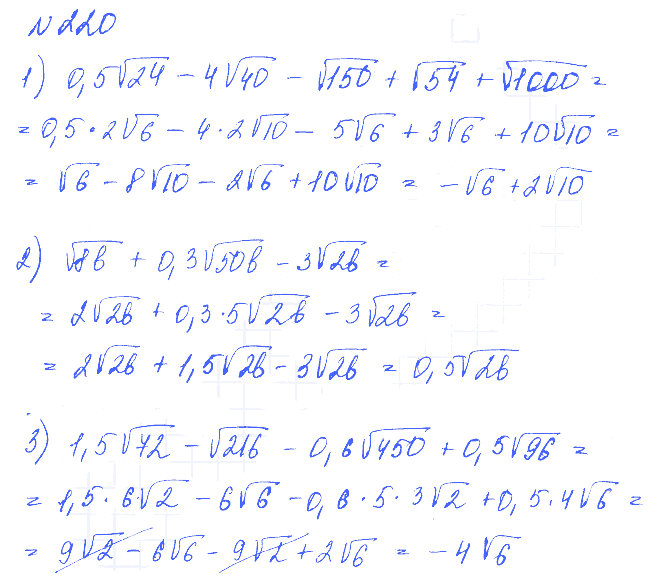 N 220
1) 0,5√24 - 4√40 - √150 + √54 + √1000 =
= 0,5 · 2√6 - 4 · 2√10 - 5√6 + 3√6 + 10√10 =
= √6 - 8√10 - 2√6 + 10√10 = -√6 + 2√10
2) √8b + 0,3√50b - 3√2b =
= 2√2b + 0,3 · 5√2b - 3√2b =
= 2√2b + 1,5√2b - 3√2b = 0,5√2b
3) 1,5√72 - √216 - 0,6√450 + 0,5√96 =
= 1,5 · 6√2 - 6√6 - 0,6 · 5 · 3√2 + 0,5 · 4√6 =
= 9√2 - 6√6 - 9√2 + 2√6 = -4√6